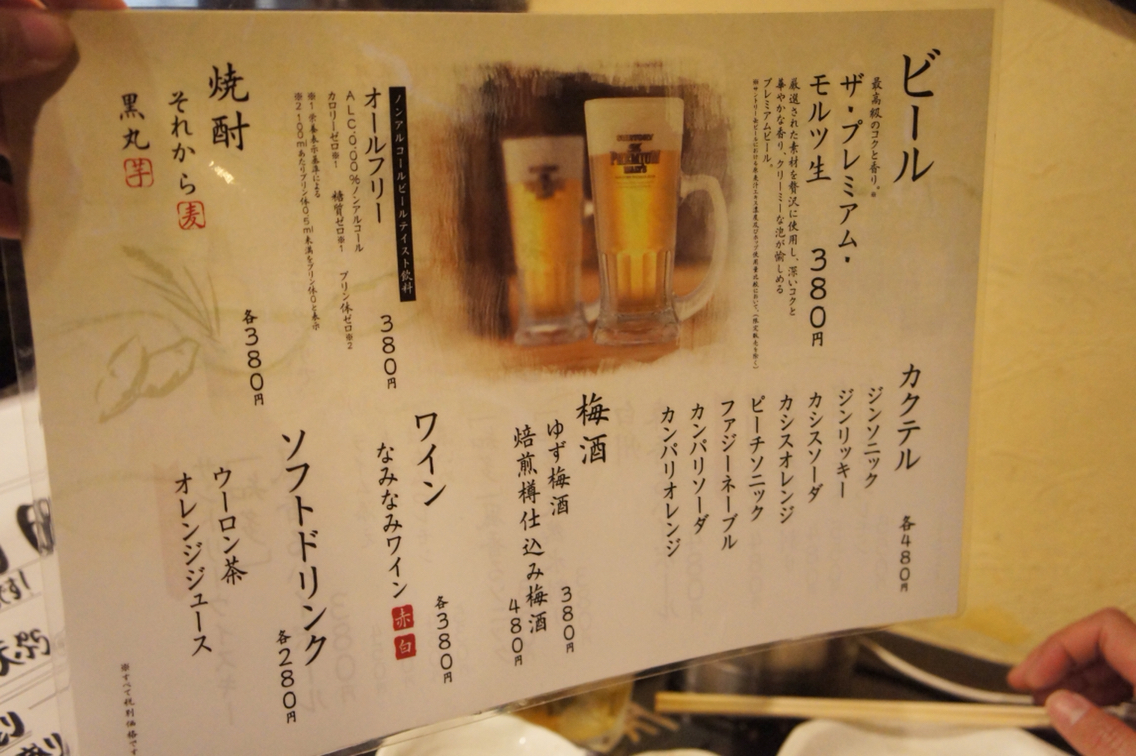 ビール
最高級のコクと香り。※
ザ・プレミアム・
モルツ生 380円
厳選された素材を贅沢に使用し、深いコクと
華やかな香り、クリーミーな泡が愉しめる
プレミアムビール。
SUNTORY
THE
PREMIUM
MALT'S
ノンアルコールビールテイスト飲料
オールフリー 380円
ALC.0.00% ノンアルコール
カロリーゼロ※1 糖質ゼロ※1 プリン体ゼロ※2
※1 栄養表示基準による
※2 100mlあたりプリン体0.5mg未満をプリン体0と表示
焼酎
各380円
それから 麦
黒丸 芋
カクテル 各480円
ジンソニック
ジンリッキー
カシスソーダ
カシスオレンジ
ピーチソニック
ファジーネーブル
カンパリソーダ
カンパリオレンジ
梅酒
ゆず梅酒 380円
焙煎樽仕込み梅酒 480円
ワイン 各380円
なみなみワイン 赤 白
ソフトドリンク 各280円
ウーロン茶
オレンジジュース
※すべて税別価格です